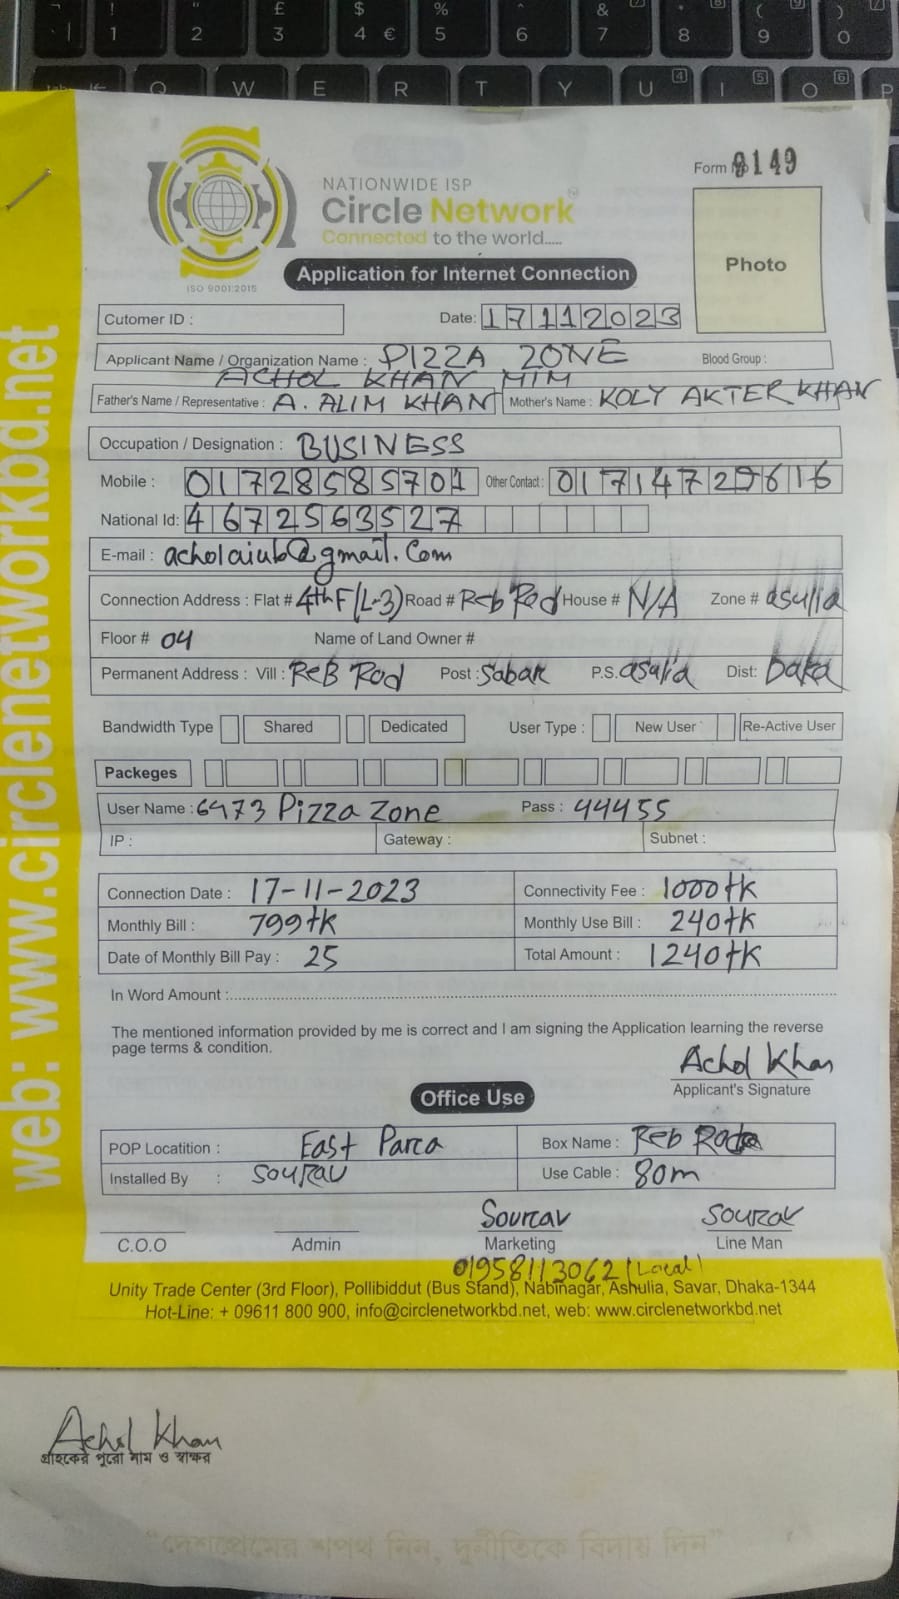 NATIONWIDE ISP
Circle Network
Connected to the world.....
ISO 9001:2015
Form 9149
Photo
Application for Internet Connection
Cutomer ID :
Date: 17112023
Applicant Name / Organization Name : PIZZA ZONE Blood Group :
ACHOL KHAN MIM
Father's Name / Representative : A. ALIM KHAN Mother's Name : KOLY AKTER KHAN
Occupation / Designation : BUSINESS
Mobile : 01728585701 Other Contact : 01714729616
National Id: 4672563527
E-mail : acholaiub@gmail.Com
Connection Address : Flat # 4thF(L-3) Road # Reb Rod House # N/A Zone # asulia
Floor # 04 Name of Land Owner #
Permanent Address : Vill : ReB Rod Post : Sabar P.S. asulia Dist: Daka
Bandwidth Type Shared Dedicated User Type : New User Re-Active User
Packeges
User Name : 6473 Pizza Zone Pass : 44455
IP : Gateway : Subnet :
Connection Date : 17-11-2023 Connectivity Fee : 1000tk
Monthly Bill : 799tk Monthly Use Bill : 240tk
Date of Monthly Bill Pay : 25 Total Amount : 1240tk
In Word Amount :
The mentioned information provided by me is correct and I am signing the Application learning the reverse
page terms & condition.
Achol Khan
Applicant's Signature
Office Use
POP Locatition : East Parca Box Name : Reb Rode
Installed By : SOURAV Use Cable : 80m
Sourav SOURAV
C.O.O Admin Marketing Line Man
01958113062 (Local)
Unity Trade Center (3rd Floor), Pollibiddut (Bus Stand), Nabinagar, Ashulia, Savar, Dhaka-1344
Hot-Line: + 09611 800 900, info@circlenetworkbd.net, web: www.circlenetworkbd.net
web: www.circlenetworkbd.net
Achol Khan
গ্রাহকের পুরো নাম ও স্বাক্ষর
"দেশপ্রেমের শপথ নিন, দুর্নীতিকে বিদায় দিন"